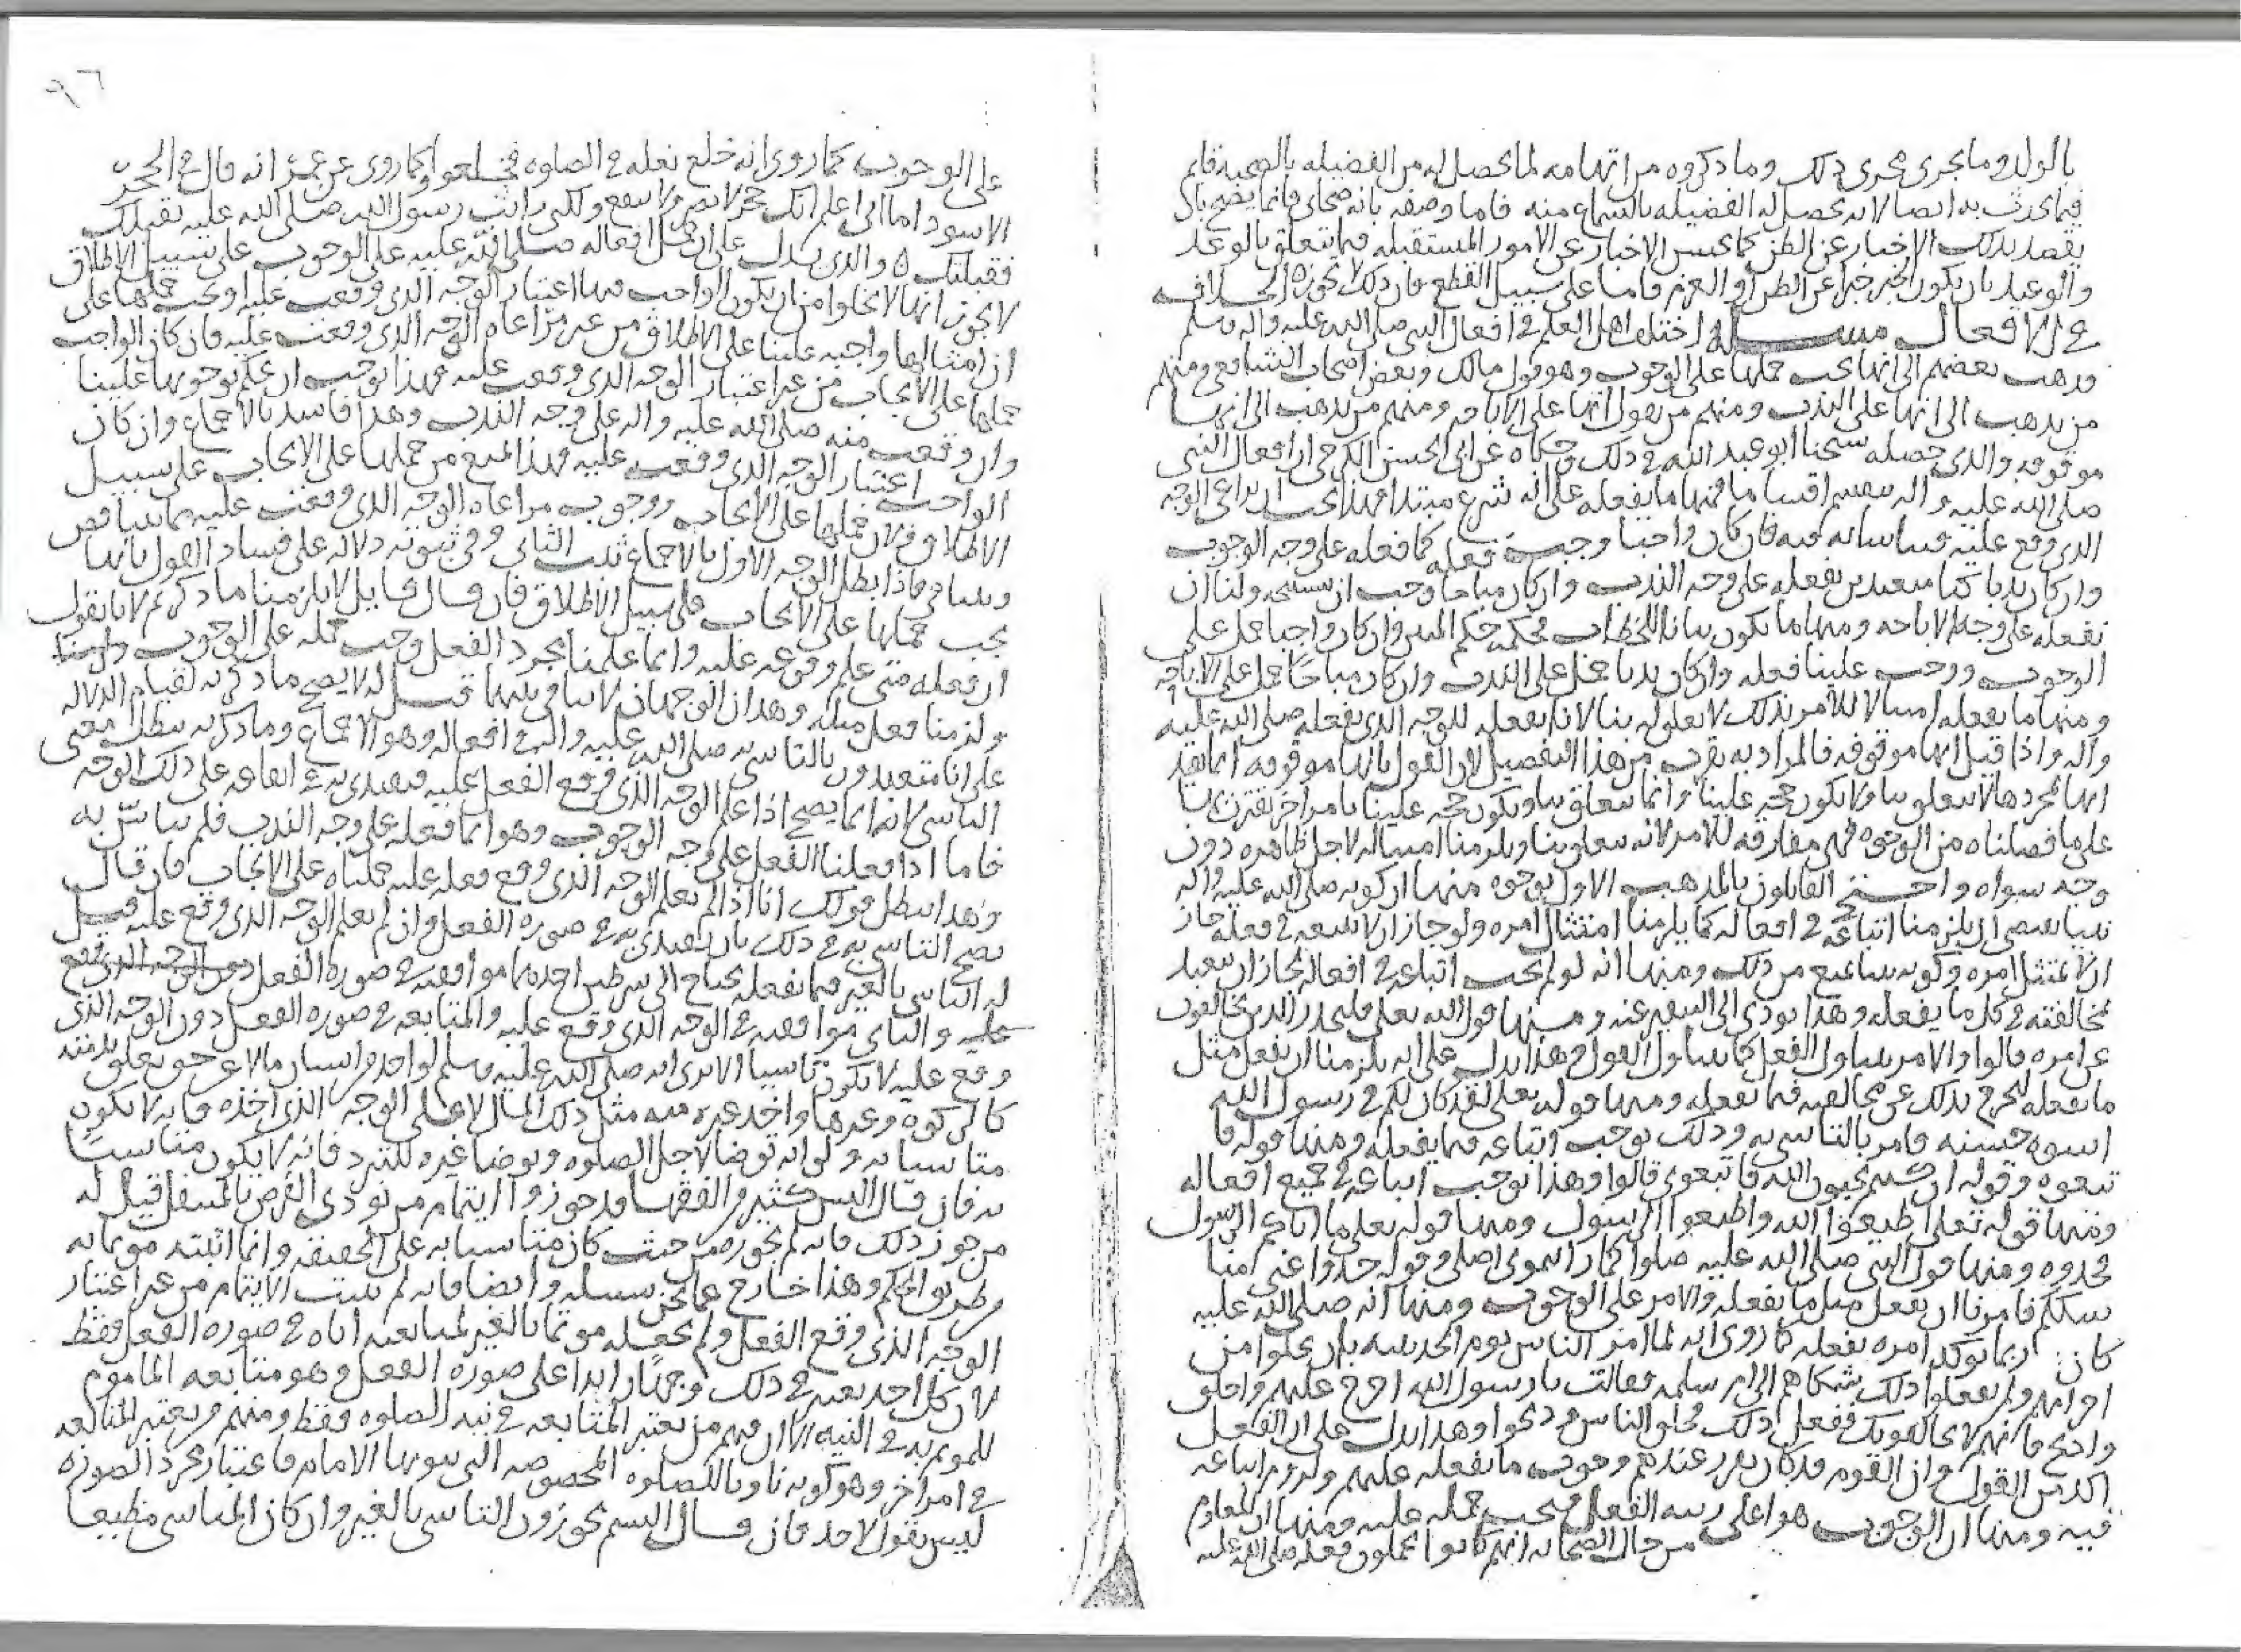 بالولد وما يجرى مجرى ذلك وما ذكروه من اتهامه لما يحصل له من الفضيله بالصحبه قايم
فيما يحدث به ايضا لانه يحصل له الفضيله بالسماع منه فاما وصفه بانه صحابى فانما يصح بان
يقصد بذلك الاخبار عن الظن كما يحسن الاخبار عن الامور المستقبله فيما يتعلق بالوعد
والوعيد بان يكون الخبر خبرا عن الظن او العزم فاما على سبيل القطع فان ذلك لا يجوز الخلاف
فى الافعال مسـله اختلف اهل العلم فى افعال النبى صلى الله عليه واله وسلم
فذهب بعضهم الى انها يجب حملها على الوجوب وهو قول مالك وبعض اصحاب الشافعى ومنهم
من يذهب الى انها على الندب ومنهم من يقول انها على الاباحه ومنهم من يذهب الى انها
موقوفه والذى حصله شيخنا ابو عبد الله فى ذلك وحكاه عن ابى الحسن الكرخى ان افعال النبى
صلى الله عليه واله تنقسم اقساما فمنها ما يفعله على انه شرع مبتدا فهذا يجب ان يراعى الوجه
الذى وقع عليه فيتاسا به فيه فان كان واجبا وجب فعله كما فعله على وجه الوجوب
وان كان ندبا كنا متعبدين بفعله على وجه الندب وان كان مباحا وجب ان ولنا ان
نفعله على وجه الاباحه ومنها ما يكون بيانا للخطاب فحكمه حكم المبين فان كان واجبا حمل على
الوجوب ووجب علينا فعله وان كان ندبا حمل على الندب وان كان مباحا حمل على الاباحه
ومنها ما يفعله امتثالا للامر فذلك لا تعلق له بنا لانا نفعله للوجه الذى يفعله صلى الله عليه
واله واذا قيل انها موقوفه فالمراد به يقرب من هذا التفصيل لان القول بانها موقوفه انما يفيد
انها بمجردها لا تتعلق بنا ولا يكون حجه علينا وانما تتعلق بنا ويكون حجه علينا بامر اخر يقترن بها
على ما فصلناه من الوجوه فهى مفارقه للامر لانه يتعلق بنا ويلزمنا امتثاله لاجل ظاهره دون
وجه سواه واحتج القايلون بالمذهب الاول بوجوه منها ان كونه صلى الله عليه واله
نبيا يقتضى ان يلزمنا اتباعه فى افعاله كما يلزمنا امتثال امره ولو جاز ان لا نتبعه فى فعله جاز
ان لا نمتثل امره وكونه نبيا يمنع من ذلك ومنها انه لو لم يجب اتباعه فى افعاله لجاز ان نتعبد
مخالفته فى كل ما يفعله وهذا يودى الى التنفير عنه ومنها قول الله تعالى فليحذر الذين يخالفون
عن امره قالوا والامر يتناول الفعل كما يتناول القول فهذا يدل على انه يلزمنا ان نفعل مثل
ما يفعله لنخرج بذلك عن مخالفته فيما يفعله ومنها قوله تعالى لقد كان لكم فى رسول الله
اسوه حسنه فامر بالتاسى به وذلك يوجب اتباعه فيما يفعله ومنها قوله فا
تبعوه وقوله ان كنتم تحبون الله فاتبعونى قالوا وهذا يوجب اتباعه فى جميع افعاله
ومنها قوله تعالى اطيعوا الله واطيعوا الرسول ومنها قوله تعالى ما اتاكم الرسول
فخذوه ومنها قول النبى صلى الله عليه صلوا كما رايتمونى اصلى وقوله خذوا عنى منا
سككم فامرنا ان نفعل مثل ما يفعله والامر على الوجوب ومنها انه صلى الله عليه
كان ربما يوكد امره بفعله كما روى انه لما امر الناس يوم الحديبيه بان يحلوا من
احرامهم ولم يفعلوا ذلك شكاهم الى ام سلمه فقالت يا رسول الله اخرج عليهم واحلق
واذبح فانهم لا يخالفونك ففعل ذلك فحلق الناس وذبحوا وهذا يدل على ان الفعل
اكد من القول وان القوم قد كان تقرر عندهم وجوب ما يفعله عليهم ولزوم اتباعه
فيه ومنها ان الوجوب هو اعلى رتبه الفعل فيجب حمله عليه ومنها ان المعلوم
من حال الصحابه انهم كانوا يحملون فعله صلى الله عليه
٩٦
على الوجوب كما روى انه خلع نعله فى الصلوه فخلعوا وكما روى عن عمر انه قال فى الحجر
الاسود اما انى اعلم انك حجر لا تضر ولا تنفع ولكنى رايت رسول الله صلى الله عليه يقبلك
فقبلتك ٥ والذى يدل على ان حمل افعاله صلى الله عليه على الوجوب على سبيل الاطلاق
لا يجوز انها لا تخلوا من ان يكون الواجب فيها اعتبار الوجه الذى وقعت عليه او يجب حملها على
ان امثالها واجبه علينا على الاطلاق من غير مراعاه الوجه الذى وقعت عليه فان كان الواجب
حملها على الايجاب من غير اعتبار الوجه الذى وقعت عليه فهذا يوجب ان يحكم بوجوبها علينا
وان وقعت منه صلى الله عليه واله على وجه الندب وهذا فاسد بالاجماع وان كان
الواجب اعتبار الوجه الذى وقعت عليه فهذا المنع من حملها على الايجاب على سبيل
الاطلاق لان حملها على الايجاب ووجوب مراعاه الوجه الذى وقعت عليه مما يتناقض
ويتنافى فاذا بطل الوجه الاول بالاجماع ثبت الثانى وفى ثبوته دلاله على فساد القول بانها
يجب حملها على الايجاب على سبيل الاطلاق فان قال قايل لا يلزمنا ما ذكرتم لانا نقول
ان فعله متى علم وقوعه عليه وانما علمنا بمجرد الفعل وجب حمله على الوجوب
ولزمنا فعل مثله وهذان الوجهان لا تنافى بينهما قيل له لا يصح ما ذكرته لقيام الدلاله
على انا متعبدون بالتاسى به صلى الله عليه واله فى افعاله وهو الاجماع وما ذكرته يبطل معنى
التاسى لانه انما يصح اذا علم الوجه الذى وقع الفعل عليه فيقتدى به فى ايقاعه على ذلك الوجه
فاما اذا فعلنا الفعل على وجه الوجوب وهو انما فعله على وجه الندب فلم نتاس به
وهذا يبطل قولك انا اذا لم نعلم الوجه الذى وقع فعله عليه حملناه على الايجاب فان قال
يصح التاسى به فى ذلك بان نقتدى به فى صوره الفعل وان لم نعلم الوجه الذى وقع عليه قيل
له التاسى بالغير فيما يفعله يحتاج الى شرطين احدهما موافقته فى صوره الفعل
والثانى موافقته فى الوجه الذى وقع عليه والمتابعه فى صوره الفعل دون الوجه الذى
وقع عليه لا يكون تاسيا الا ترى انه صلى الله عليه وسلم لو اخذ من انسان مالا عن حق تعلق بذمته
كالزكوه وغيرها واخذ غيره منه مثل ذلك المال لا على الوجه الذى اخذه فانه لا يكون
متاسيا به ولو انه توضا لاجل الصلوه وتوضا غيره للتبرد فانه لا يكون متاسيا
به فان قال اليس كثير من الفقها قد جوزوا ايتمام من يودى الفرض بالمتنفل قيل له
من جوز ذلك فانه لم يجوزه من حيث كان متاسيا به على الحقيقه وانما اثبته موتما به
من طريق الحكم وهذا خارج عما نحن بسبيله وايضا فانه لم يثبت الايتمام من غير اعتبار
الوجه الذى وقع الفعل ولم يجعله موتما بالغير لمتابعته اياه فى صوره الفعل فقط
لان كل احد يعتبر فى ذلك وجها زايدا على صوره الفعل وهو متابعه الماموم
للموتم به فى النيه الا ان فيهم من يعتبر المتابعه فى نيه الصلوه فقط ومنهم من يعتبر المتابعه
فى امر اخر وهو كونه ناويا للصلوه المخصوصه التى ينويها الامام فاعتبار مجرد الصوره
ليس بقول لاحد فان قال الستم تجوزون التاسى بالغير وان كان المتاسى مطيعا